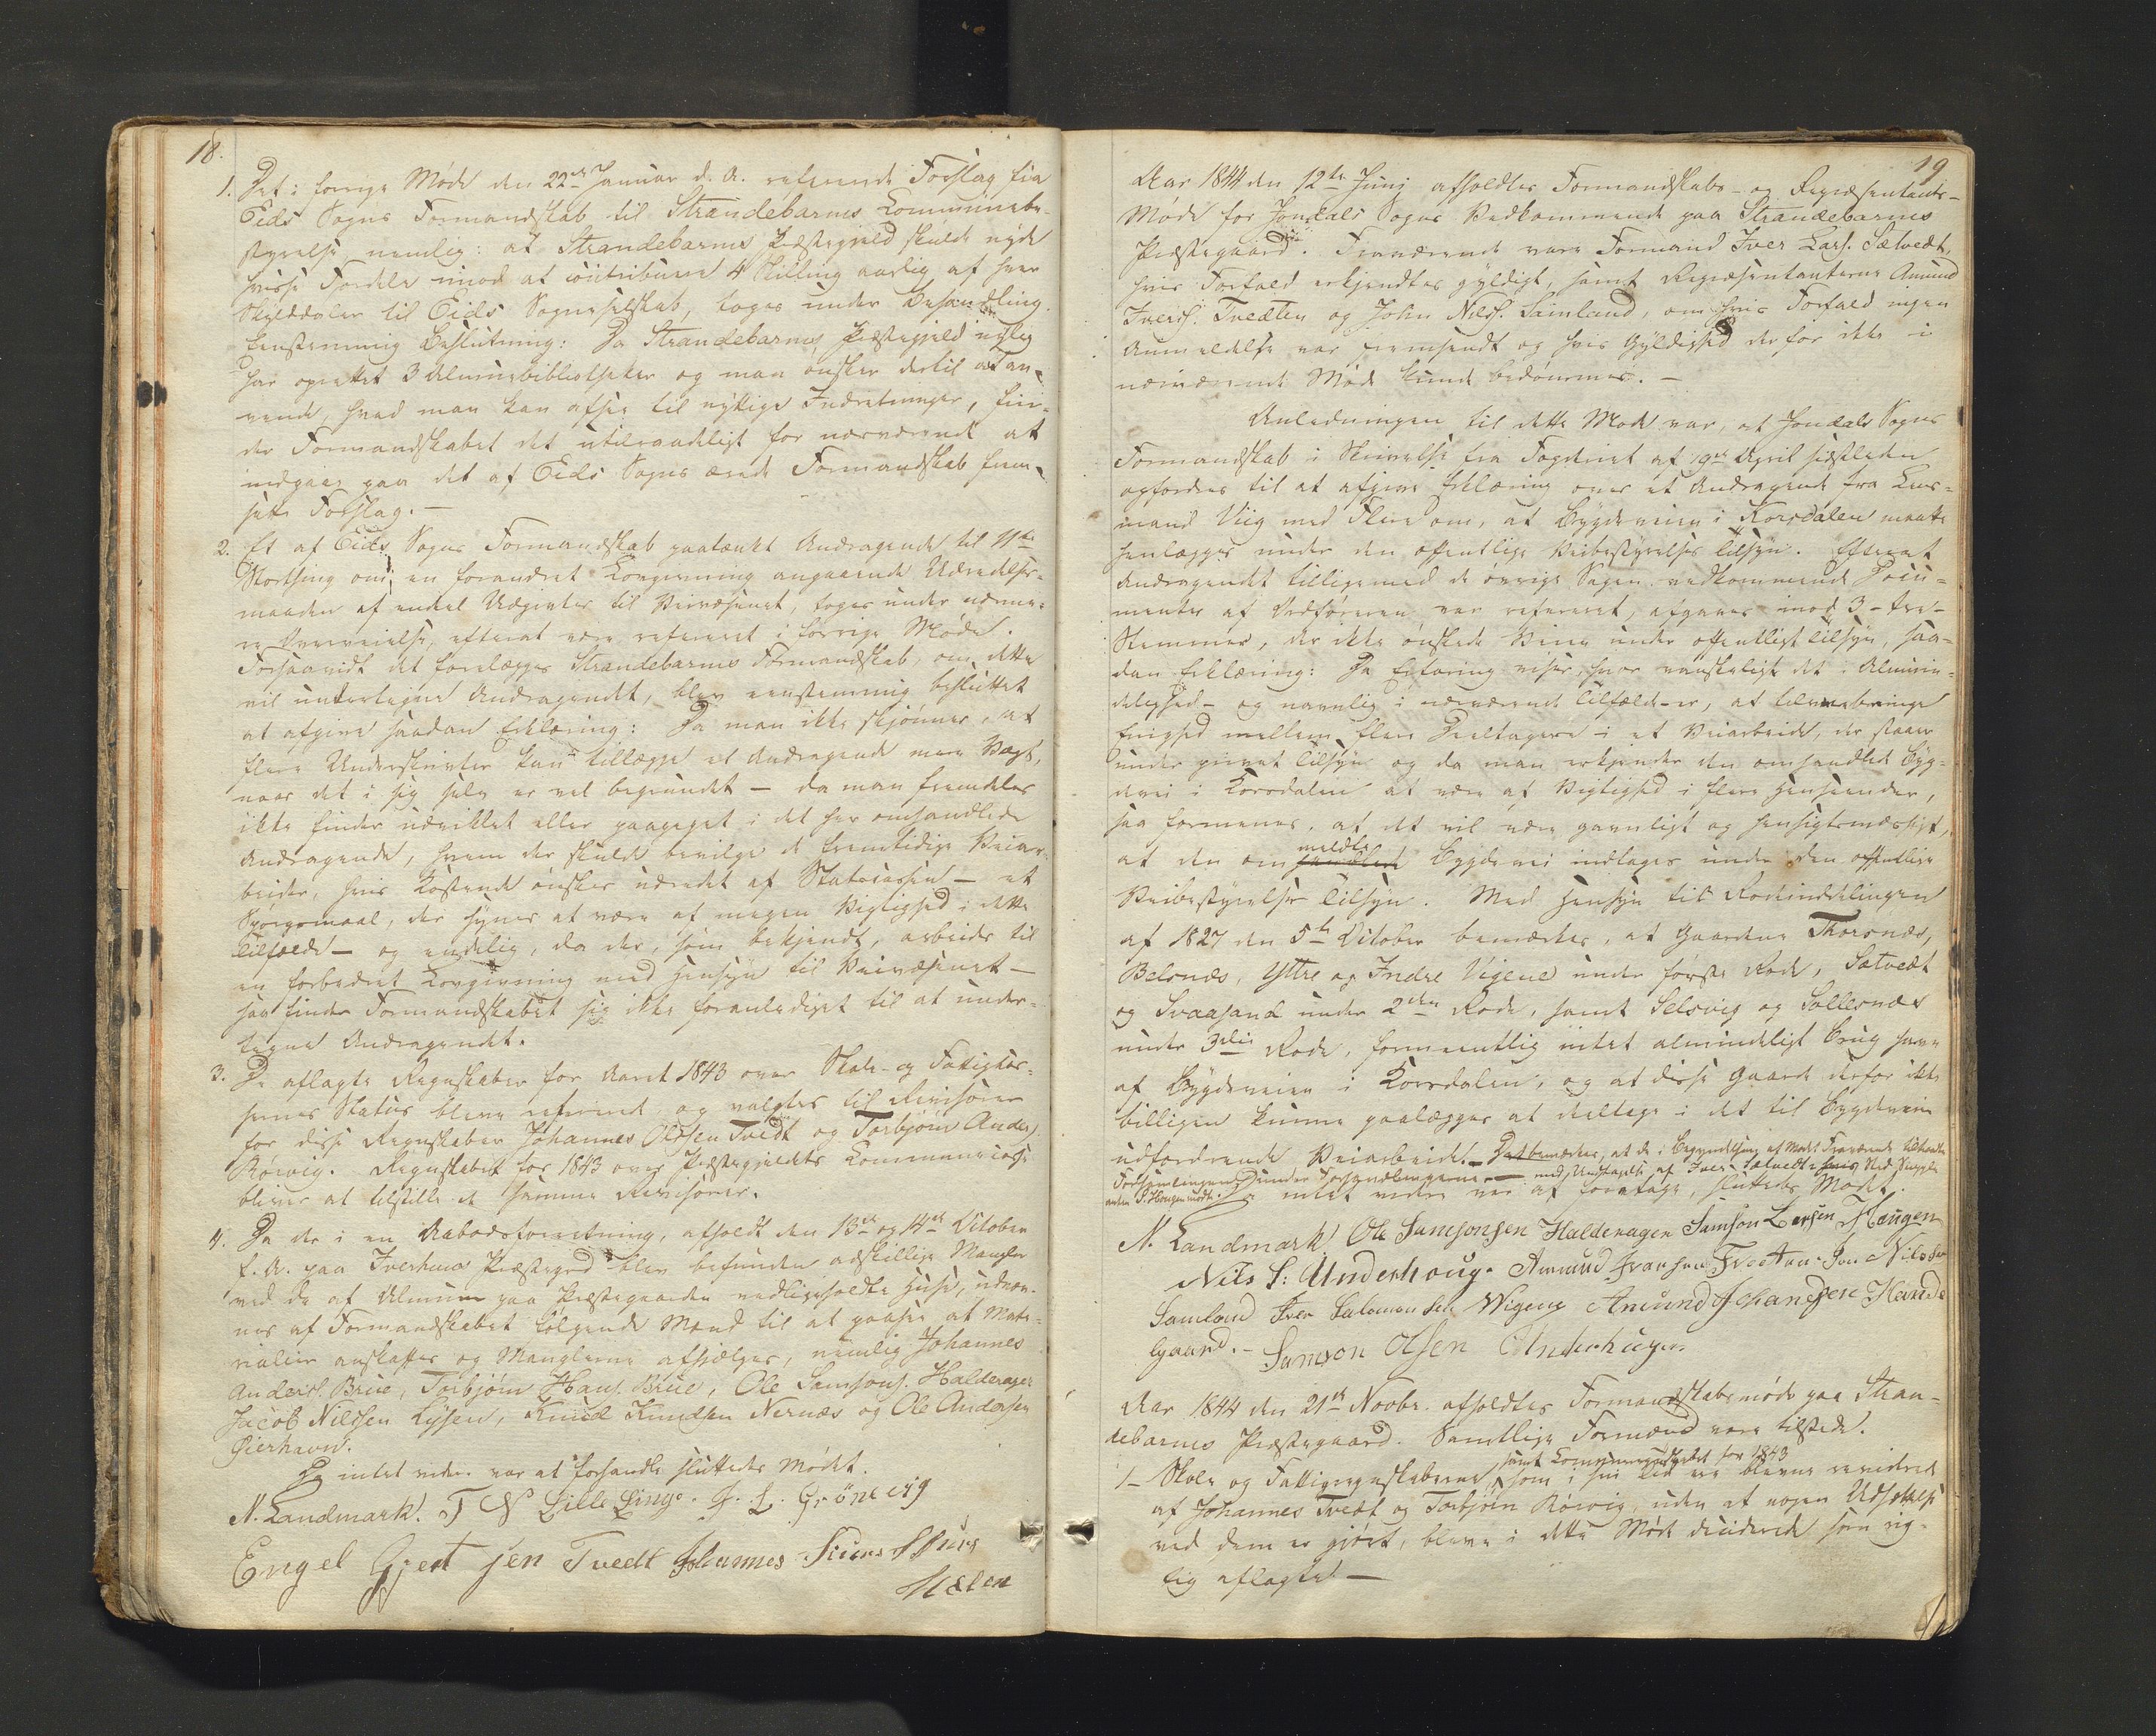 18.
1. Det i forrige Møde den 22de Januar d. A. refererede Forslag fra
Eids Sogns Formandskab til Strandebarms Communebe-
styrelse nemlig: at Strandebarms Præstegjeld skulde nyde
visse Fordele imod at contribuere 4 Skilling aarlig af hver
Skylddaler til Eids Sogneselskab, toges under Behandling.
Eenstemmig Beslutning: Da Strandebarms Præstegjeld nylig
har oprettet 3 Almuebibliotheker og man ønsker dertil at an-
vende, hvad man kan afsee til nyttige Indretninger, fin-
der Formandskabet det utilraadeligt for nærværende at
indgaae paa det af Eids Sogns ærede Formandskab frem-
satte Forslag. —
2. Et af Eids Sogns Formandskab paatænkt Andragende til 11te
Storthing om en forandret Lovgivning angaaende Udredelses-
maaden af endeel Udgivter til Veivæsenet, toges under nærme-
re Overveielse, efterat være refereret i forrige Møde.
Forsaavidt det forelægges Strandebarms Formandskab, om dette
vil undertegne Andragendet, blev eenstemmig besluttet
at afgive saadan Erklæring: Da man ikke skjønner, at
flere Underskrivter kan tillægge et Andragende mere Vægt,
naar det i sig selv er vel begrundet — da man fremdeles
ikke finder udviklet eller paapeget i det her omhandlede
Andragende, hvem der skulde bevilge de fremtidige Veiar-
beider, hvis Kostende ønskes udredet af Statscassen — et
Spørgsmaal, der synes at være af megen Vigtighed i dette
Tilfælde — og endelig, da der, som bekjendt, arbeides til
en forbedret Lovgivning med Hensyn til Veivæsenet —
saa finder Formandskabet sig ikke foranlediget til at under-
tegne Andragendet.
3. De aflagte Regnskaber for Aaret 1843 over Skole- og Fattigkas-
sernes Status bleve refereret og valgtes til Revisorer
for disse Regnskaber Johannes Olssen Tvedt og Torbjørn Anders.
Rørvig. Regnskabet for 1843 over Præstegjeldets Communecasse
bliver at tilstille de samme Revisorer.
4. Da der i en Aabodsforretning, afholdt den 13de og 14de October
f. A. paa Tverhuus Præstegrd blev befunden adskillige Mangler
ved de af Almuen paa Præstegaarden vedligeholdte Huse, udnæv-
nes af Formandskabet følgende Mænd til at paasee at Mate-
rialier anskaffes og Manglerne afhjelpes, nemlig Johannes
Anders. Brue, Torbjørn Hans. Brue, Ole Samsons. Halderager
Jacob Nilssen Lyssen, Knud Knudsen Nernæs og Ole Andersen
Oierhavn.
Da intet videre var at forhandle sluttedes Mødet.
N. Landmark. T N Lille Linge. J. L. Grönevig
Engel Gjert sen Tvedt Johannes
Mælen
19
Aar 1844 den 12te Junj afholdtes Formandskabs- og Repræsentants-
Møde for Jondals Sogns Vedkommende paa Strandebarms
Præstegaard. Fraværende vare Formand Iver Lars. Sætvedt,
hvis Forfald erkjendtes gyldigt, samt Repræsentanterne Amund
Ivers. Tvedten og John Nils. Samland, om hvis Forfald ingen
Anmeldelse var fremsendt og hvis Gyldighed derfor ikke i
nærværende Møde kunde bedømmes. —
Anledningen til dette Møde var, at Jondals Sogns
Formandskab i Skrivelse fra Fogderiet af 9de April sidstleden
opfordres til at afgive Erklæring over et Andragende fra Lens-
mand Viig med Flere om, at Bygdeveien i Korsdalen maatte
henlægges under den offentlige Veibestyrelses Tilsyn. Efterat
Andragendet tilligemed de øvrige Sagen vedkommende Docu-
menter af Ordføreren var refereret, afgaves imod 3 – tre –
Stemmer, der ikke ønskede Veien under offentligt Tilsyn, saa-
dan Erklæring: Da Erfaring viser, hvor vanskeligt det i Almin-
delighed – og navnlig i nærværende Tilfælde – er, at tilveiebringe
Enighed mellem flere Deeltagere i et Veiarbeide, der staaer
under privat Tilsyn og da man erkjender den omhandlede Byg-
devei i Korsdalen at være af Vigtighed i flere Henseender,
saa formenes, at det vil være gavnligt og hensigtsmæssigt,
at den ommeldte Bygdevei indtages under den offentlige
Veibestyrelses Tilsyn. Med Hensyn til Rodeinddelingen
af 1827 den 5te October bemærkes, at Gaardene Thorsnæs,
Belsnæs, Yttre og Indre Vigene under første Rode, Sætvedt
og Svaasand under 2den Rode, samt Selsvig og Sollesnæs
under 3die Rode, formeentlig intet almindeligt Brug have
af Bygdeveien i Korsdalen, og at disse Gaarde derfor ikke
billigen kunne paalægges at deeltage i det til Bygdeveien
udfordrende Veiarbeide. – Det bemærkes, at de i Begyndelsen af Mødet Fraværende tilstede
under Forhandlingerne – med Undtagelse af Iver Sætvedt i hvis Sted Supple-
anten S. Haugen mødte. Da intet videre var at foretage, sluttedes Mødet.
N. Landmark Ole Samsonsen Halderager Samson Larsen Haugen
Nils S: Underhoug. Amund Iversen Tvedten Jon Nilssen
Samland Iver Salomonsen Wigene Amund Johannessen Hande
gaard. – Samson Olsen Underhugen
Aar 1844 den 21de Novbr. afholdtes Formandskabsmøde paa Stran-
debarms Præstegaard. Samtlige Formænd vare tilstede.
samt Communeregnskabet for 1843
1 – Skole og Fattigregnskaberne som i sin Tid ere blevne revideret
af Johannes Tvedt og Torbjörn Rörvig, uden at nogen Udsættelse
ved dem er gjort, bleve i dette Møde deciderede som rig-
tig aflagte. —